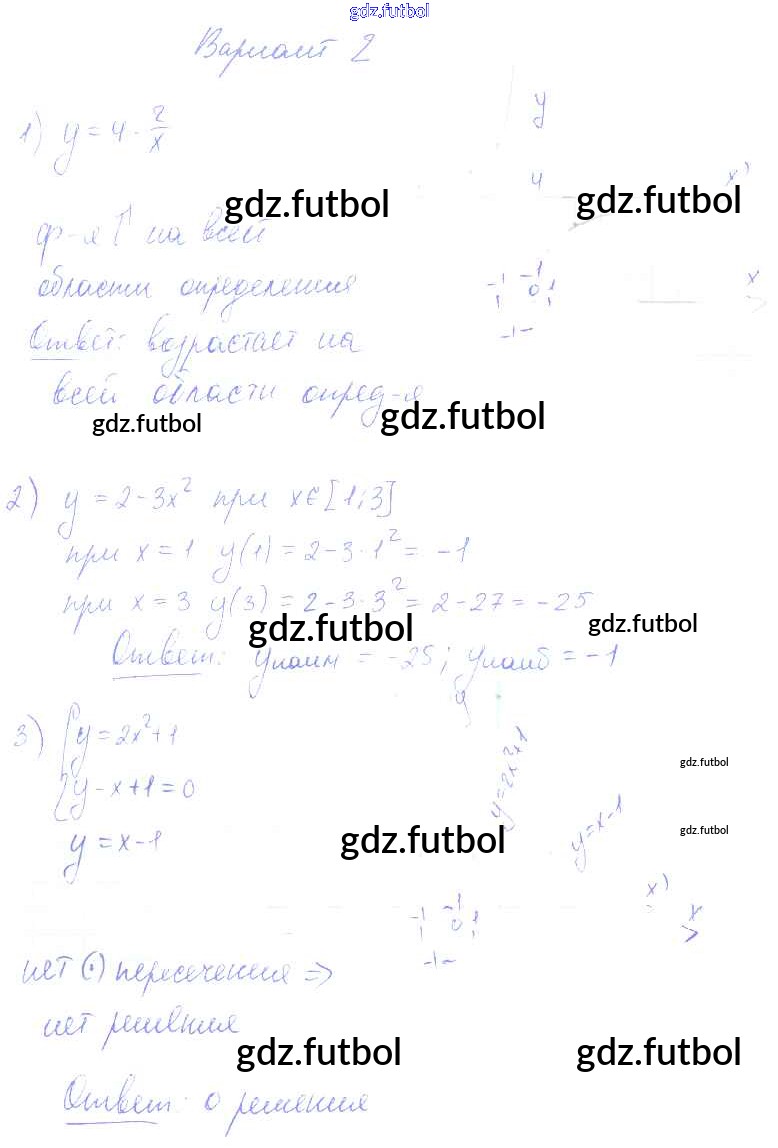 gdz.futbol
Вариант 2
1) y = 4 - 2/x
y
4
x'
gdz.futbol
gdz.futbol
ф-я ↑ на всей
области определения
-1 -1 0 1
x
Ответ: возрастает на
всей области опред-я
gdz.futbol
gdz.futbol
2) y = 2 - 3x² при x ∈ [1; 3]
при x = 1 y(1) = 2 - 3 · 1² = -1
при x = 3 y(3) = 2 - 3 · 3² = 2 - 27 = -25
gdz.futbol
gdz.futbol
Ответ: yнаим = -25; yнаиб = -1
3) { y = 2x² + 1
y - x + 1 = 0
y = x - 1
y
y = 2x² + 1
y = x - 1
gdz.futbol
gdz.futbol
gdz.futbol
x'
-1 -1 0 1
x
нет (·) пересечения ⇒
нет решения
gdz.futbol
gdz.futbol
Ответ: 0 решения